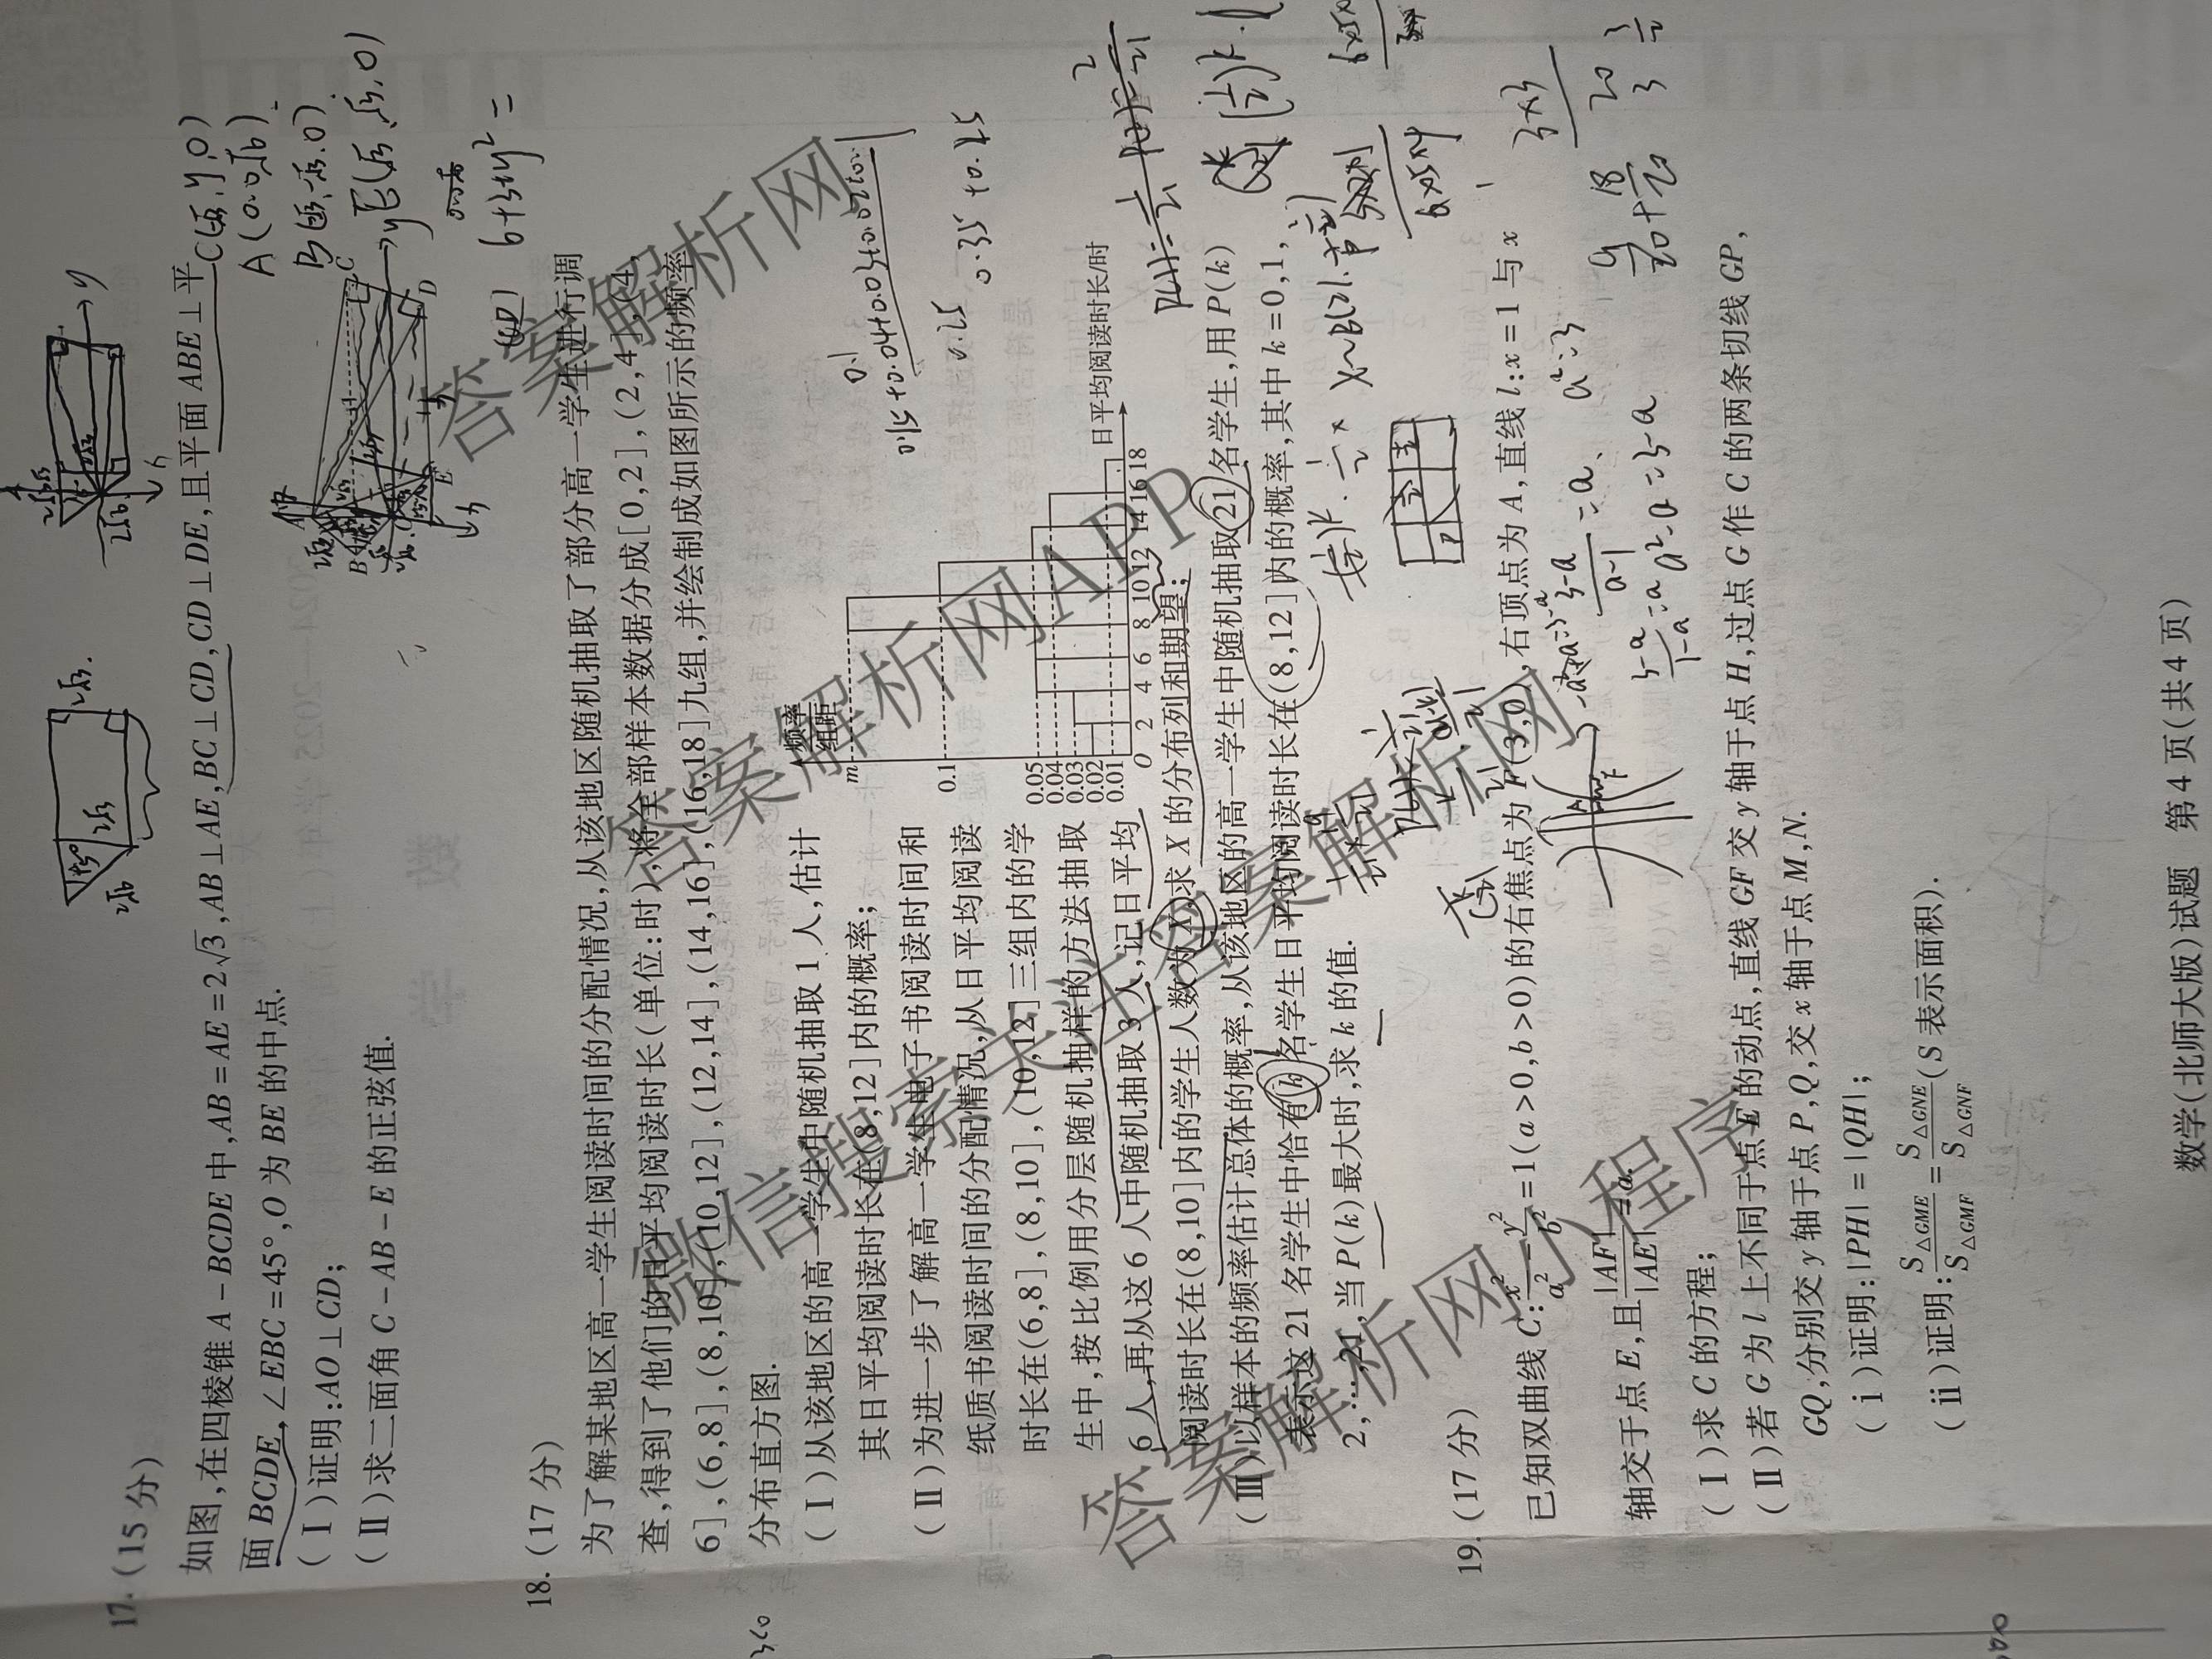 17. (15分)
如图,在四棱锥 A-BCDE 中,AB=AE=2√3,AB⊥AE,BC⊥CD,CD⊥DE,且平面 ABE⊥平
面 BCDE,∠EBC=45°,O 为 BE 的中点.
(Ⅰ)证明:AO⊥CD;
(Ⅱ)求二面角 C-AB-E 的正弦值.
A(0.0.√6)
18. (17分)
为了解某地区高一学生阅读时间的分配情况,从该地区随机抽取了部分高一学生进行调
查,得到了他们的日平均阅读时长(单位:时),将全部样本数据分成[0,2],(2,4],(4,
6],(6,8],(8,10],(10,12],(12,14],(14,16],(16,18]九组,并绘制成如图所示的频率
分布直方图.
(Ⅰ)从该地区的高一学生中随机抽取1人,估计
其日平均阅读时长在(8,12]内的概率;
(Ⅱ)为进一步了解高一学生电子书阅读时间和
纸质书阅读时间的分配情况,从日平均阅读
时长在(6,8],(8,10],(10,12]三组内的学
生中,按比例用分层随机抽样的方法抽取
6人,再从这6人中随机抽取3人,记日平均
阅读时长在(8,10]内的学生人数为X,求X的分布列和期望;
频率
组距
m
0.1
0.05
0.04
0.03
0.02
0.01
O 2 4 6 8 10 12 14 16 18 日平均阅读时长/时
(Ⅲ)以样本的频率估计总体的概率,从该地区的高一学生中随机抽取21名学生,用P(k)
表示这21名学生中恰有k名学生日平均阅读时长在(8,12]内的概率,其中k=0,1,
2,…,21,当P(k)最大时,求k的值.
19. (17分)
已知双曲线 C: x²/a² - y²/b² =1(a>0,b>0)的右焦点为 F(3,0),右顶点为 A,直线 l:x=1 与 x
轴交于点 E,且 |AF|/|AE| =a.
(Ⅰ)求 C 的方程;
(Ⅱ)若 G 为 l 上不同于点 E 的动点,直线 GF 交 y 轴于点 H,过点 G 作 C 的两条切线 GP,
GQ,分别交 y 轴于点 P,Q,交 x 轴于点 M,N.
(ⅰ)证明:|PH|=|QH|;
(ⅱ)证明: S△GME/S△GMF = S△GNE/S△GNF (S 表示面积).
a²=3
数学(北师大版)试题 第4页(共4页)
答案解析网
答案解析网APP
微信搜索关注答案解析网
答案解析网小程序